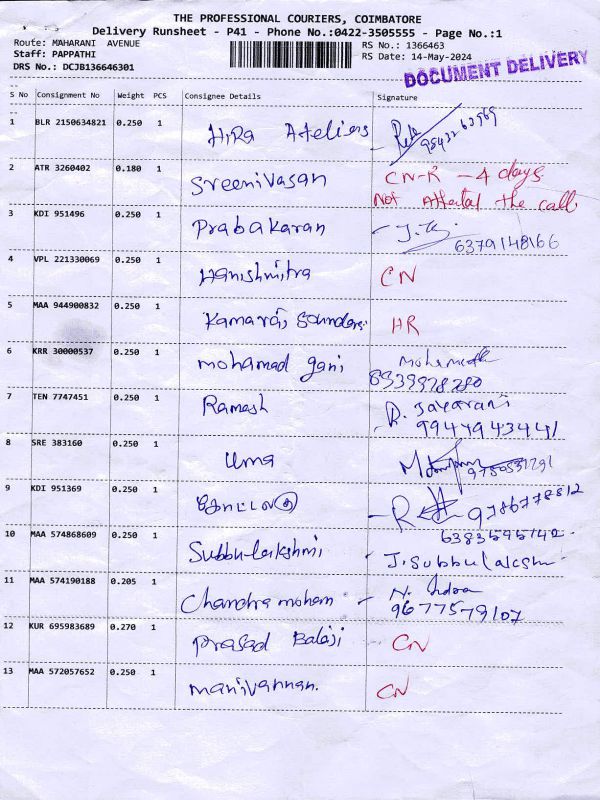 THE PROFESSIONAL COURIERS, COIMBATORE
Delivery Runsheet - P41 - Phone No.:0422-3505555 - Page No.:1
Route: MAHARANI AVENUE
Staff: PAPPATHI
DRS No.: DCJB136646301
RS No.: 1366463
RS Date: 14-May-2024
DOCUMENT DELIVERY
S No Consignment No Weight PCS Consignee Details Signature
1 BLR 2150634821 0.250 1 HiRa Ateliers
2 ATR 3260402 0.180 1 Sreenivasan CN-R - 4 days
Not the call
3 KDI 951496 0.250 1 Prabakaran
6379148166
4 VPL 221330069 0.250 1 Hanishmitra CN
5 MAA 944900832 0.250 1 Kamaraj HR
6 KRR 30000537 0.250 1 mohamad gani
7 TEN 7747451 0.250 1 Ramash R. Jayarani
9944943441
8 SRE 383160 0.250 1 uma
9 KDI 951369 0.250 1 9786778812
10 MAA 574868609 0.250 1 Subbu-lakshmi J. Subbulakshmi
11 MAA 574190188 0.205 1 Chandra moham N. Indra
9677579107
12 KUR 695983689 0.270 1 Prasad Balaji CN
13 MAA 572057652 0.250 1 manivannan. CN